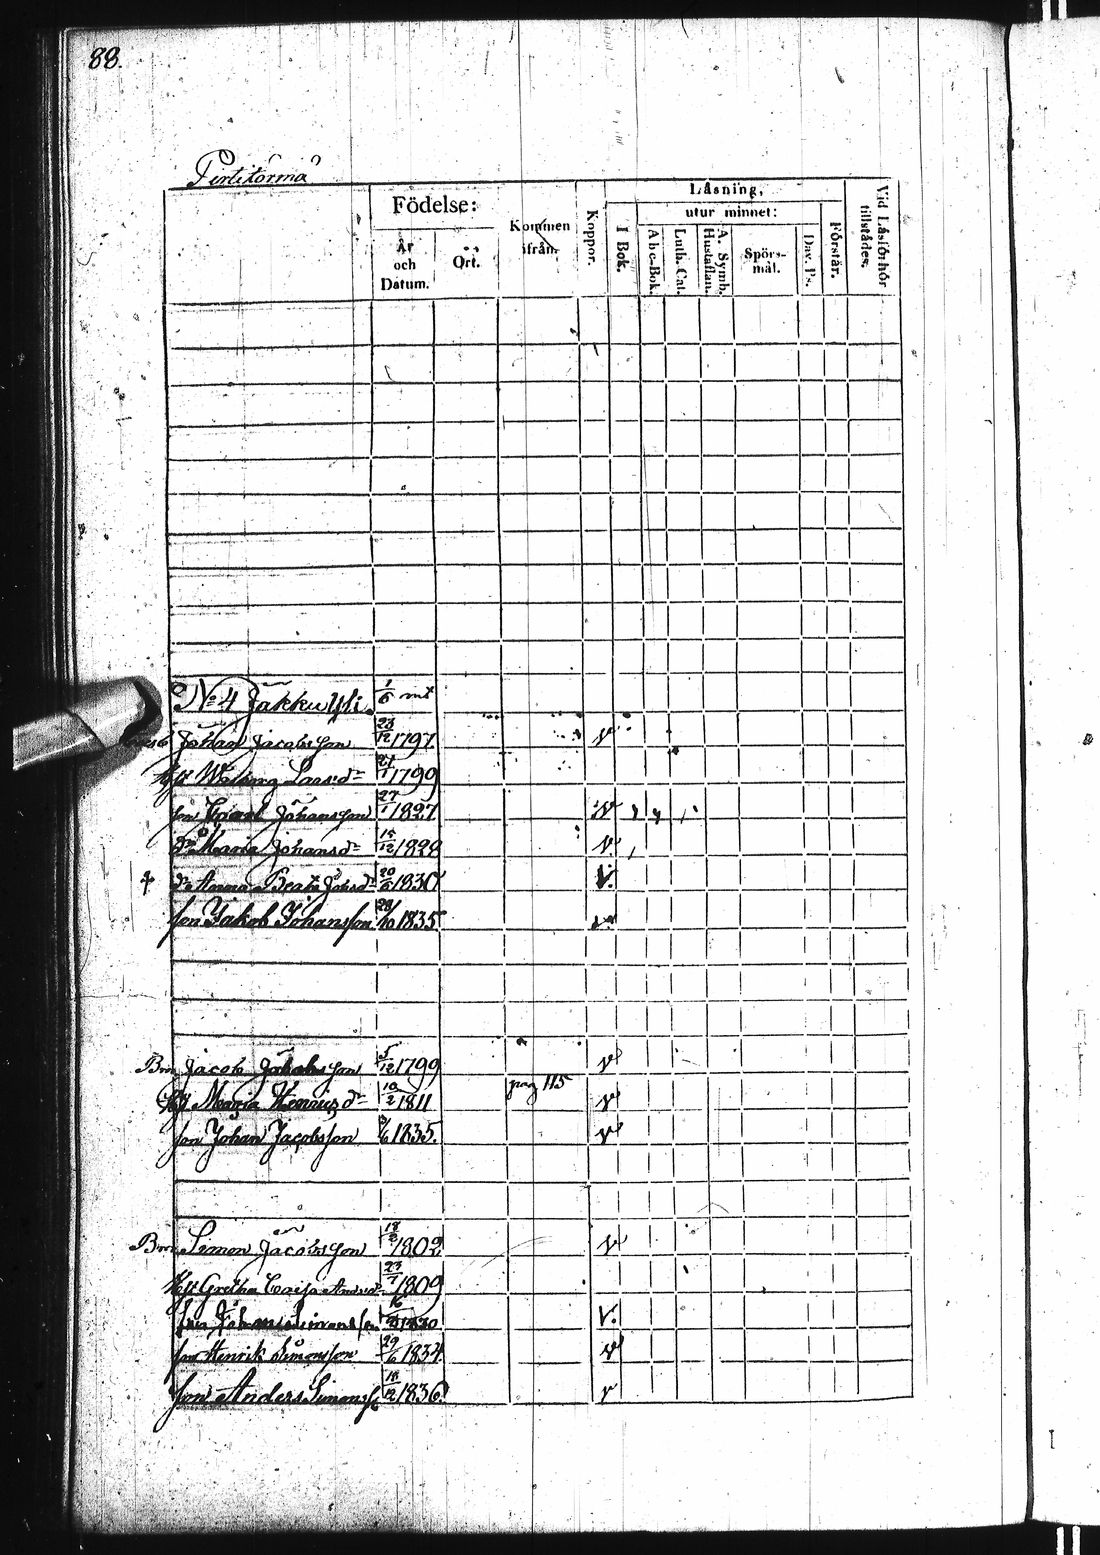 88.
Pirtitörmä
Födelse:
År och Datum.
Ort.
Kommen ifrån.
Koppor.
Läsning,
I Bok.
utur minnet:
Abc-Bok.
Luth. Cat.
A. Symb. Hustaflan.
Spörs-mål.
Dav. Ps.
Förstår.
Vid Läsförhör tillstädes.
No 4 Jakku yli. 1/6 mt
Johan Jacobsson 23/12 1797 v
Hst Walborg Larsdr 1799
son Johansson 27/1 1827 v
dr Maria Johansdr 15/12 1828 v
† dr Anna Beata Johsdr 20/6 1830 v.
son Jakob Johansson 28/10 1835 v
Bror Jacob Jakobsson 5/12 1799 v
Hst Maria Henricsdr 10/2 1811 pag 115 v
son Johan Jacobsson 1835. v
Bror Simon Jacobsson 1802 v
Hst Gretha Caisa Andersdr 23/7 1809
son Johan Simonsson 1830 v.
son Henrik Simonsson 29/6 1834 v
son Anders Simonss 1836 v